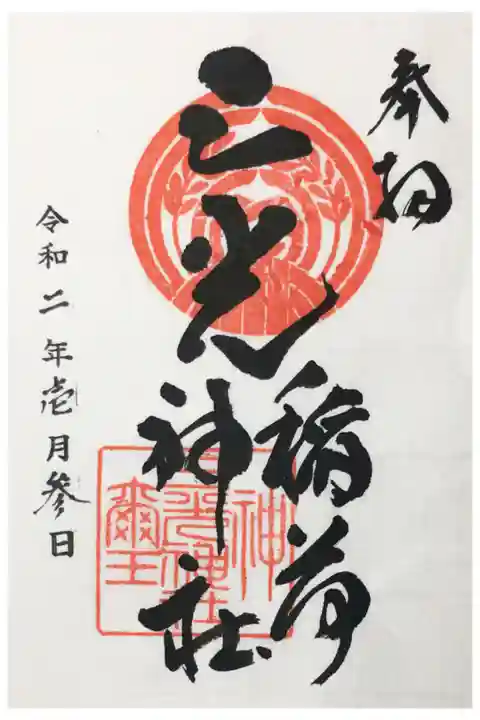 奉拝
三光
稲荷
神社
令和二年壱月参日